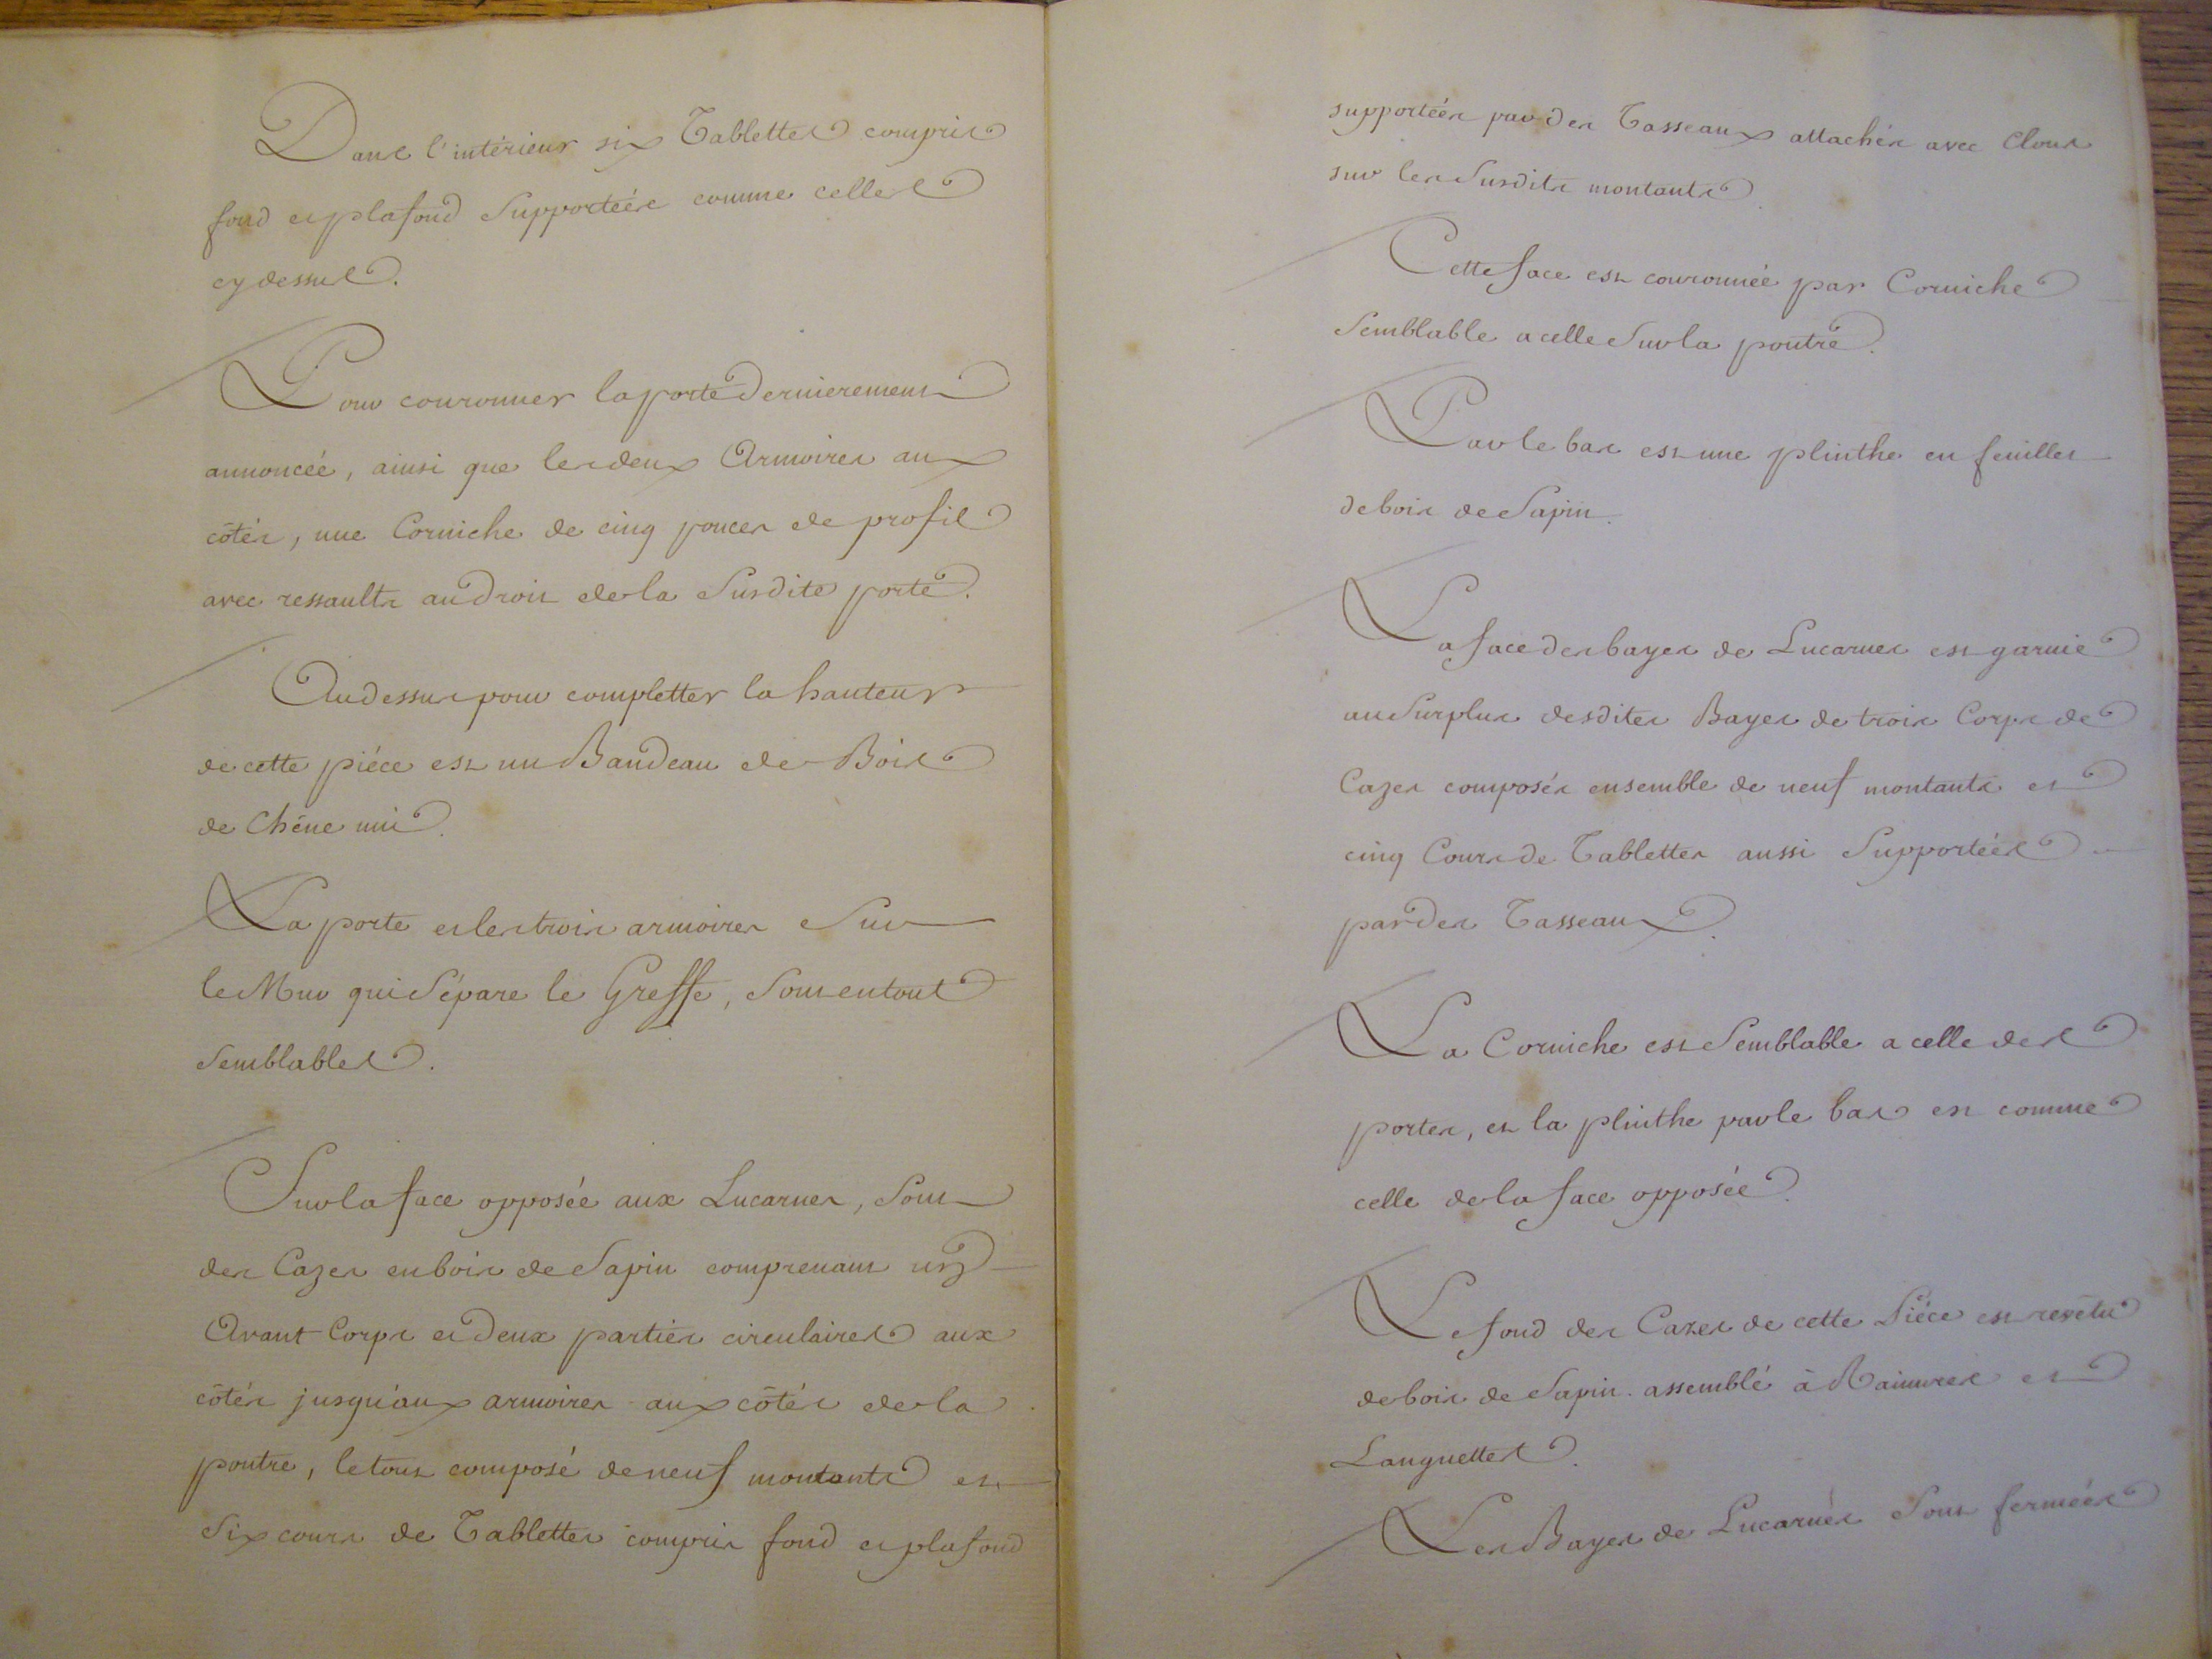 Dans l'intérieur six Tablettes compris
fond et plafond Supportées comme celles
cy dessus.
Pour couronner la porte dernierement
annoncée, ainsi que les deux Armoires aux
côtés, une Corniche de cinq pouces de profil
avec ressaults au droit de la Susdite porte.
Au dessus pour completter la hauteur
de cette piéce est un Bandeau de Bois
de Chêne uni.
La porte et les trois armoires Sur
le Mur qui Sépare le Greffe, Sont en tout
Semblables.
Sur la face opposée aux Lucarnes, Sont
des Cazes en bois de Sapin comprenant un
Avant Corps et deux parties circulaires aux
côtés jusqu'aux armoires aux côtés de la
poutre, le tout composé de neuf montants et
Six cours de Tablettes compris fond et plafond
supportées par des Tasseaux attachés avec Clous
sur les Susdits montants.
Cette face est couronnée par Corniche
Semblable a celle Sur la poutre.
Par le bas est une plinthe en feuilles
de bois de Sapin.
La face des bayes de Lucarnes est garnie
au Surplus desdites Bayes de trois Corps de
Cazes composés ensemble de neuf montants et
cinq Cours de Tablettes aussi Supportées
par des Tasseaux.
La Corniche est Semblable a celle des
portes, et la plinthe par le bas est comme
celle de la face opposée.
Le fond des Cazes de cette Piéce est revêtu
de bois de Sapin assemblé à Rainures et
Languettes.
Les Bayes de Lucarnes Sont fermées